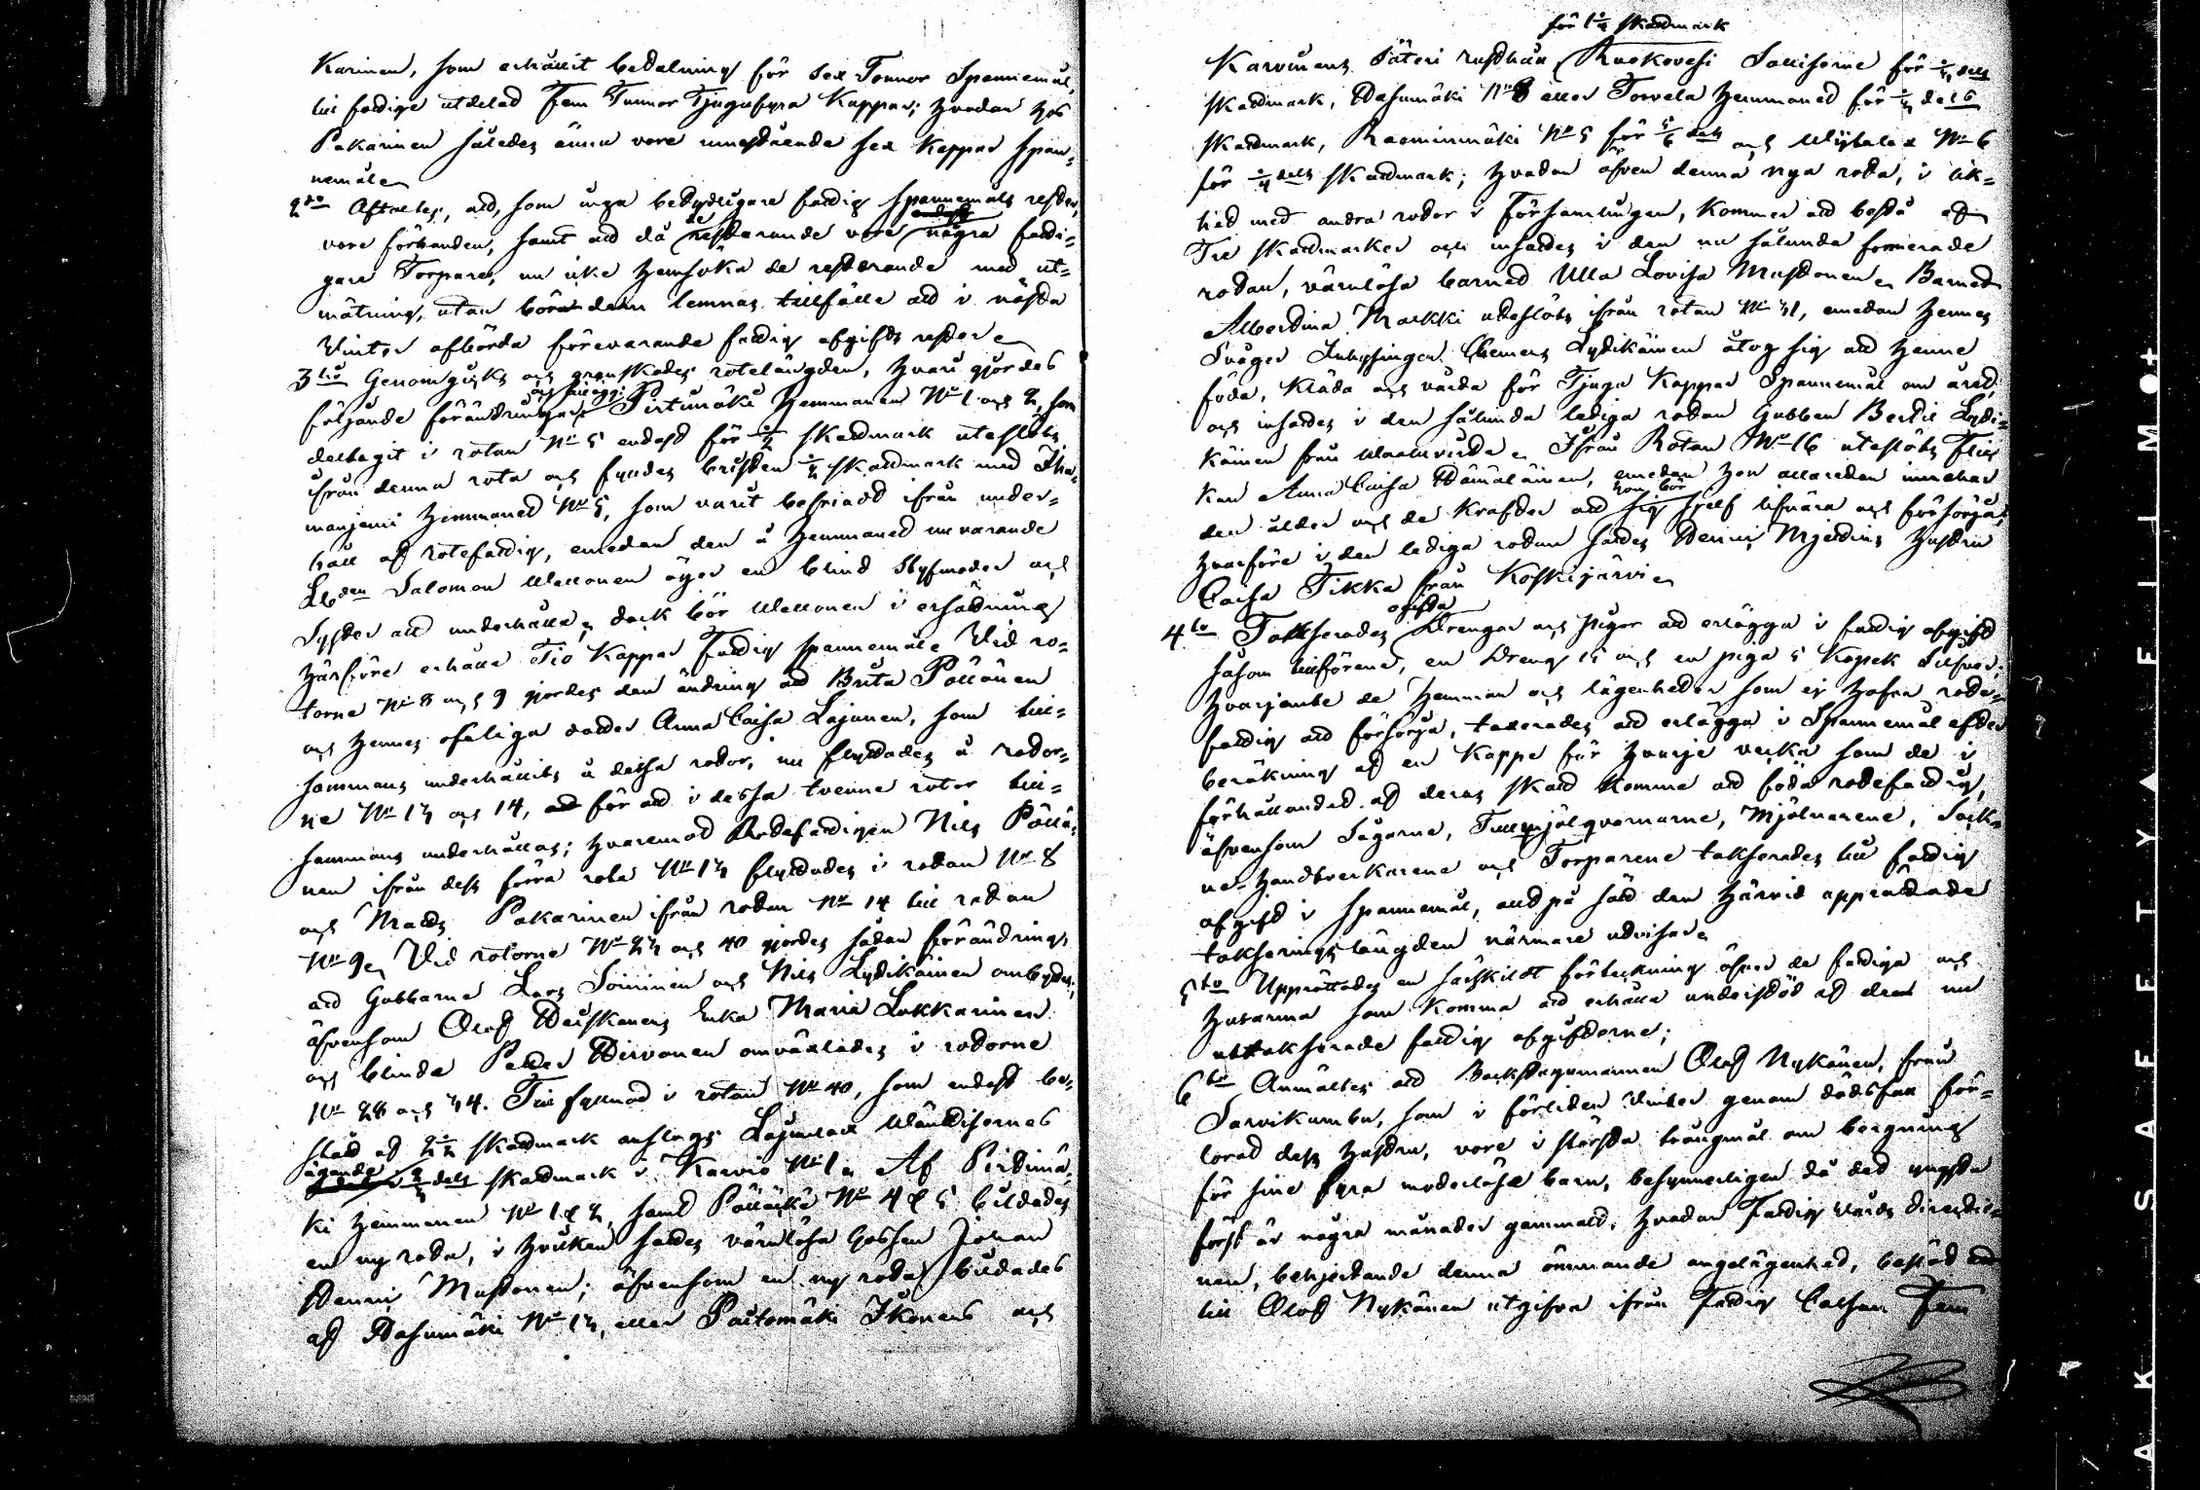 Karinen, som erhållit betalning för sex Tunnor Spannemål,
till fattige utdelat Fem Tunnor Tjugufyra Kappar; hvadan hos
Pakarinen således ännu vore innestående sex Kappar span-
nemåle
2do Aftaltes, att, som inga betydligare fattig spannemåls rester,
vore förhanden, samt att då de resterande vore endast några fatti-
gare Torpare, nu icke hemsöka de resterande med ut-
mätning, utan böra dem lemnas tillfälle att i nästa
Vinter afbörda förevarande fattig afgifts rester
3tio Genomgicks och granskades rotelängden, hvari gjordes
följande förändringar och tillägg: Pirtimäki Hemmanen No 1 och 2, som
deltagit i rotan No 5 endast för skattmark uteslöts
ifrån denna rota och fylldes bristen skattmark med
manjemi Hemmanet No 5, som varit befriadt ifrån under-
håll af rotefattig, emedan den å Hemmanet nu varande
Ldbden Salomon Wellonen äger en blind Styfmoder och
Syster att underhålla, dock bör Wellonen i ersättning
härföre erhålla Tio Kappar Fattig spannemåle Vid ro-
torne No 8 och 9 gjordes den ändring att Brita Pöllänen
och hennes ofeliga dotter Anna Caisa Lajunen, som till-
sammans underhållits å dessa rotor, nu flyttades å rotor-
ne No 13 och 14, för att i dessa tvenne rotor till-
sammans underhållas; hvaremot Rotefattigen Nils Pöllä-
nen ifrån dess förra rota No 13 flyttades i rotan No 8
och Matts Pakarinen ifrån rotan No 14 till rotan
No 9. Vid rotorne No 23 och 40 gjordes sådan förändring,
att Gubbarne Lars Soininen och Nils Lydikäinen ombyttes,
äfvensom Olof Heiskanens Enka Maria Lukkarinen
och blinda Petter Hirvonen omväxlades i rotorne
No 28 och 34. Till fyllnad i rotan No 40, som endast be-
stod af 2½ skattmark anslogs
ägande dels skattmark i Karvio No 1. Af Pirtimä-
ki Hemmanen No 1 & 2, samt Pölläkä No 4 & 5 bildades
en ny rota, i hvilken sattes värnlösa Gossen Johan
Henric Mustonen; äfvensom en ny rota bildades
af Hasumäki No 13, eller Paitomäki Ikonens och
för 1¼ skattmark
Karvinens Säteri rusthåll, Ruokovesi för dels
skattmark, Hasumäki No 8 eller Torvela Hemmanet för dels
skattmark, Raeminmäki No 5 för 5/6 dels och No 6
för dels skattmark; hvadan äfven denna nya rota, i lik-
het med andra rotor i Församlingen, kommer att bestå af
Tre skattmarker och insattes i den nu sålunda formerade
rotan, värnlösa barnet Ulla Lovisa Mustonen. Barnet
Albertina Markki uteslöts ifrån rotan No 31, emedan hennes
Svåger Inhysingen Clemens Lydikäinen åtog sig att henne
föda, kläda och vårda för Tjugu Kappar Spannemål om året,
och insattes i den sålunda lediga rotan Gubben Bertil Lydi-
käinen från. Ifrån Rotan No 16 uteslöts Flic-
kan Anna Caisa Hämäläinen, emedan hon allaredan innehar
den ålder och de krafter att hon bör sig sjelf lifnära och försörja,
hvarföre i den lediga rotan sattes Henric Mjetinens hustru
Caisa Tikka från Koskijärvi
4to Taxerades ofriska Drengar och Pigor att erlägga i fattig afgift
såsom tillförene, en Dreng 15 och en piga 5 Kopek Silfver;
hvarjemte de Hemman och lägenheter som ej hafva rote-
fattig att försörja, taxerades att erlägga i Spannemål efter
beräkning af en Kappe för hvarje vecka som de i
förhållandet af deras skatt komme att föda rotefattig,
äfvensom Sågarne, Tullmjölqvarnarne, Mjölnarene, Sock-
ne-Handtverkarene och Torparene taxerades till fattig
afgift i spannemål, allt på sätt den härvid upprättade
taxeringslängden närmare utvisar
5to Upprättades en särskildt förteckning öfver de fattiga och
husarma som komma att erhålla understöd af dem nu
uttaxerade fattig afgifterne;
6to Anmältes att Backstugumannen Olof Nykänen, från
Sarvikumbu, som i förliden Vinter genom dödsfall för-
lorat dess hustru, vore i största trångmål om bergning
för sine fyra moderlösa barn, besynnerligen då det yngsta
först är några månader gammalt; hvadan Fattig Vårds Directio-
nen, behjertande denna ömmande angelägenhet, beslöt att
till Olof Nykänen utgifva ifrån Fattig Cassan Fem